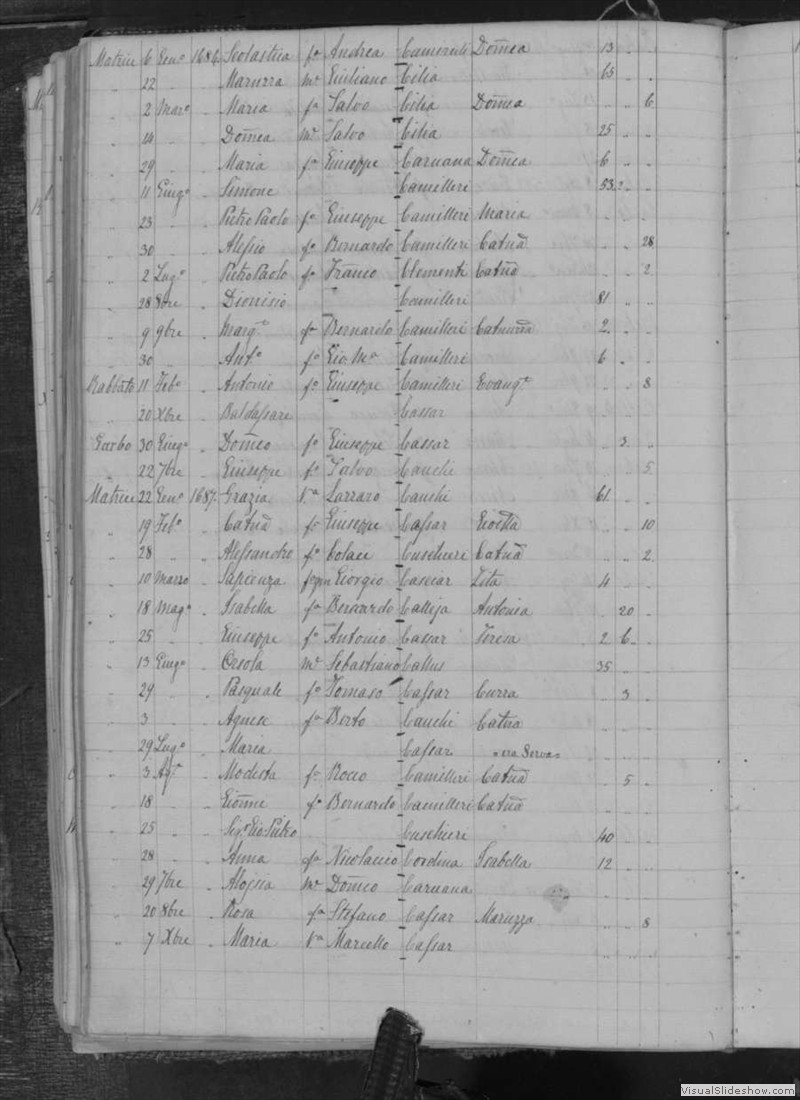 Matrice 6 Genº 1686 Scolastica fª Andrea Camenzuli Domca 13 „ „
„ 22 „ „ Maruzza mº Giuliano Cilia 65 „ „
„ 2 Marº „ Maria fª Salvo Cilia Domca „ „ 6
„ 14 „ Domca mº Salvo Cilia 25 „ „
„ 29 „ Maria fª Giuseppe Caruana Domca 6 „ „
„ 11 Giugº „ Simone Camilleri 53 „ „
„ 23 „ Pietro Paolo fº Giuseppe Camilleri Maria „ „ „
„ 30 „ Alessio fº Bernardo Camilleri Catnã „ „ 28
„ 2 Lugº „ Pietro Paolo fº Franco Clementi Catnã „ „ 2
„ 28 8bre „ Dionisio Camilleri 81 „ „
„ 9 9bre „ Margª fª Bernardo Camilleri Catnuzza 2 „ „
„ 30 „ Antº fº Gio Mª Camilleri 6 „ „
Rabbato 11 Febº „ Antonio fº Giuseppe Camilleri Evangª „ „ 8
„ 20 Xbre „ Baldassare Cassar
Garbo 30 Giugº „ Domco fº Giuseppe Cassar „ 3 „
„ 22 7bre „ Giuseppe fº Salvo Cauchi „ „ 5
Matrice 22 Genº 1687 Grazia Vª Lazzaro Cauchi 61 „ „
„ 19 Febº „ Catnã fª Giuseppe Cassar „ „ 10
„ 28 „ Alessandro fº Colaci Cuschieri Catnã „ „ 2
„ 10 Marzo „ Sapienza Giorgio Casciar Zita 4 „ „
„ 18 Magº „ Isabella fª Bernardo Calleja Antonia „ 20 „
„ 25 „ Giuseppe fº Antonio Cassar Teresa 2 6 „
„ 13 Giugº „ Orsola mº Sebastiano Callus 35 „ „
„ 29 „ Pasquale fº Tomaso Cassar Curra „ 3 „
„ 3 „ Agnese fª Berto Cauchi Catna „ „ „
„ 29 Lugº „ Maria Cassar „ era Serva „ „ „ „
„ 3 Agº „ Modesta fª Rocco Camilleri Catnã „ 5 „
„ 18 „ Gionne fº Bernardo Camilleri Catnã
„ 25 „ Sigr Gio Pietro Cuschieri 40 „ „
„ 28 „ Anna fª Nicolaccio Cordina Isabella 12 „ „
„ 29 7bre „ Aloisia mº Domco Caruana
„ 20 8bre „ Rosa fª Stefano Cassar Maruzza „ „ 8
„ 7 Xbre „ Maria Vª Marcello Cassar „ „ „
VisualSlideshow.com